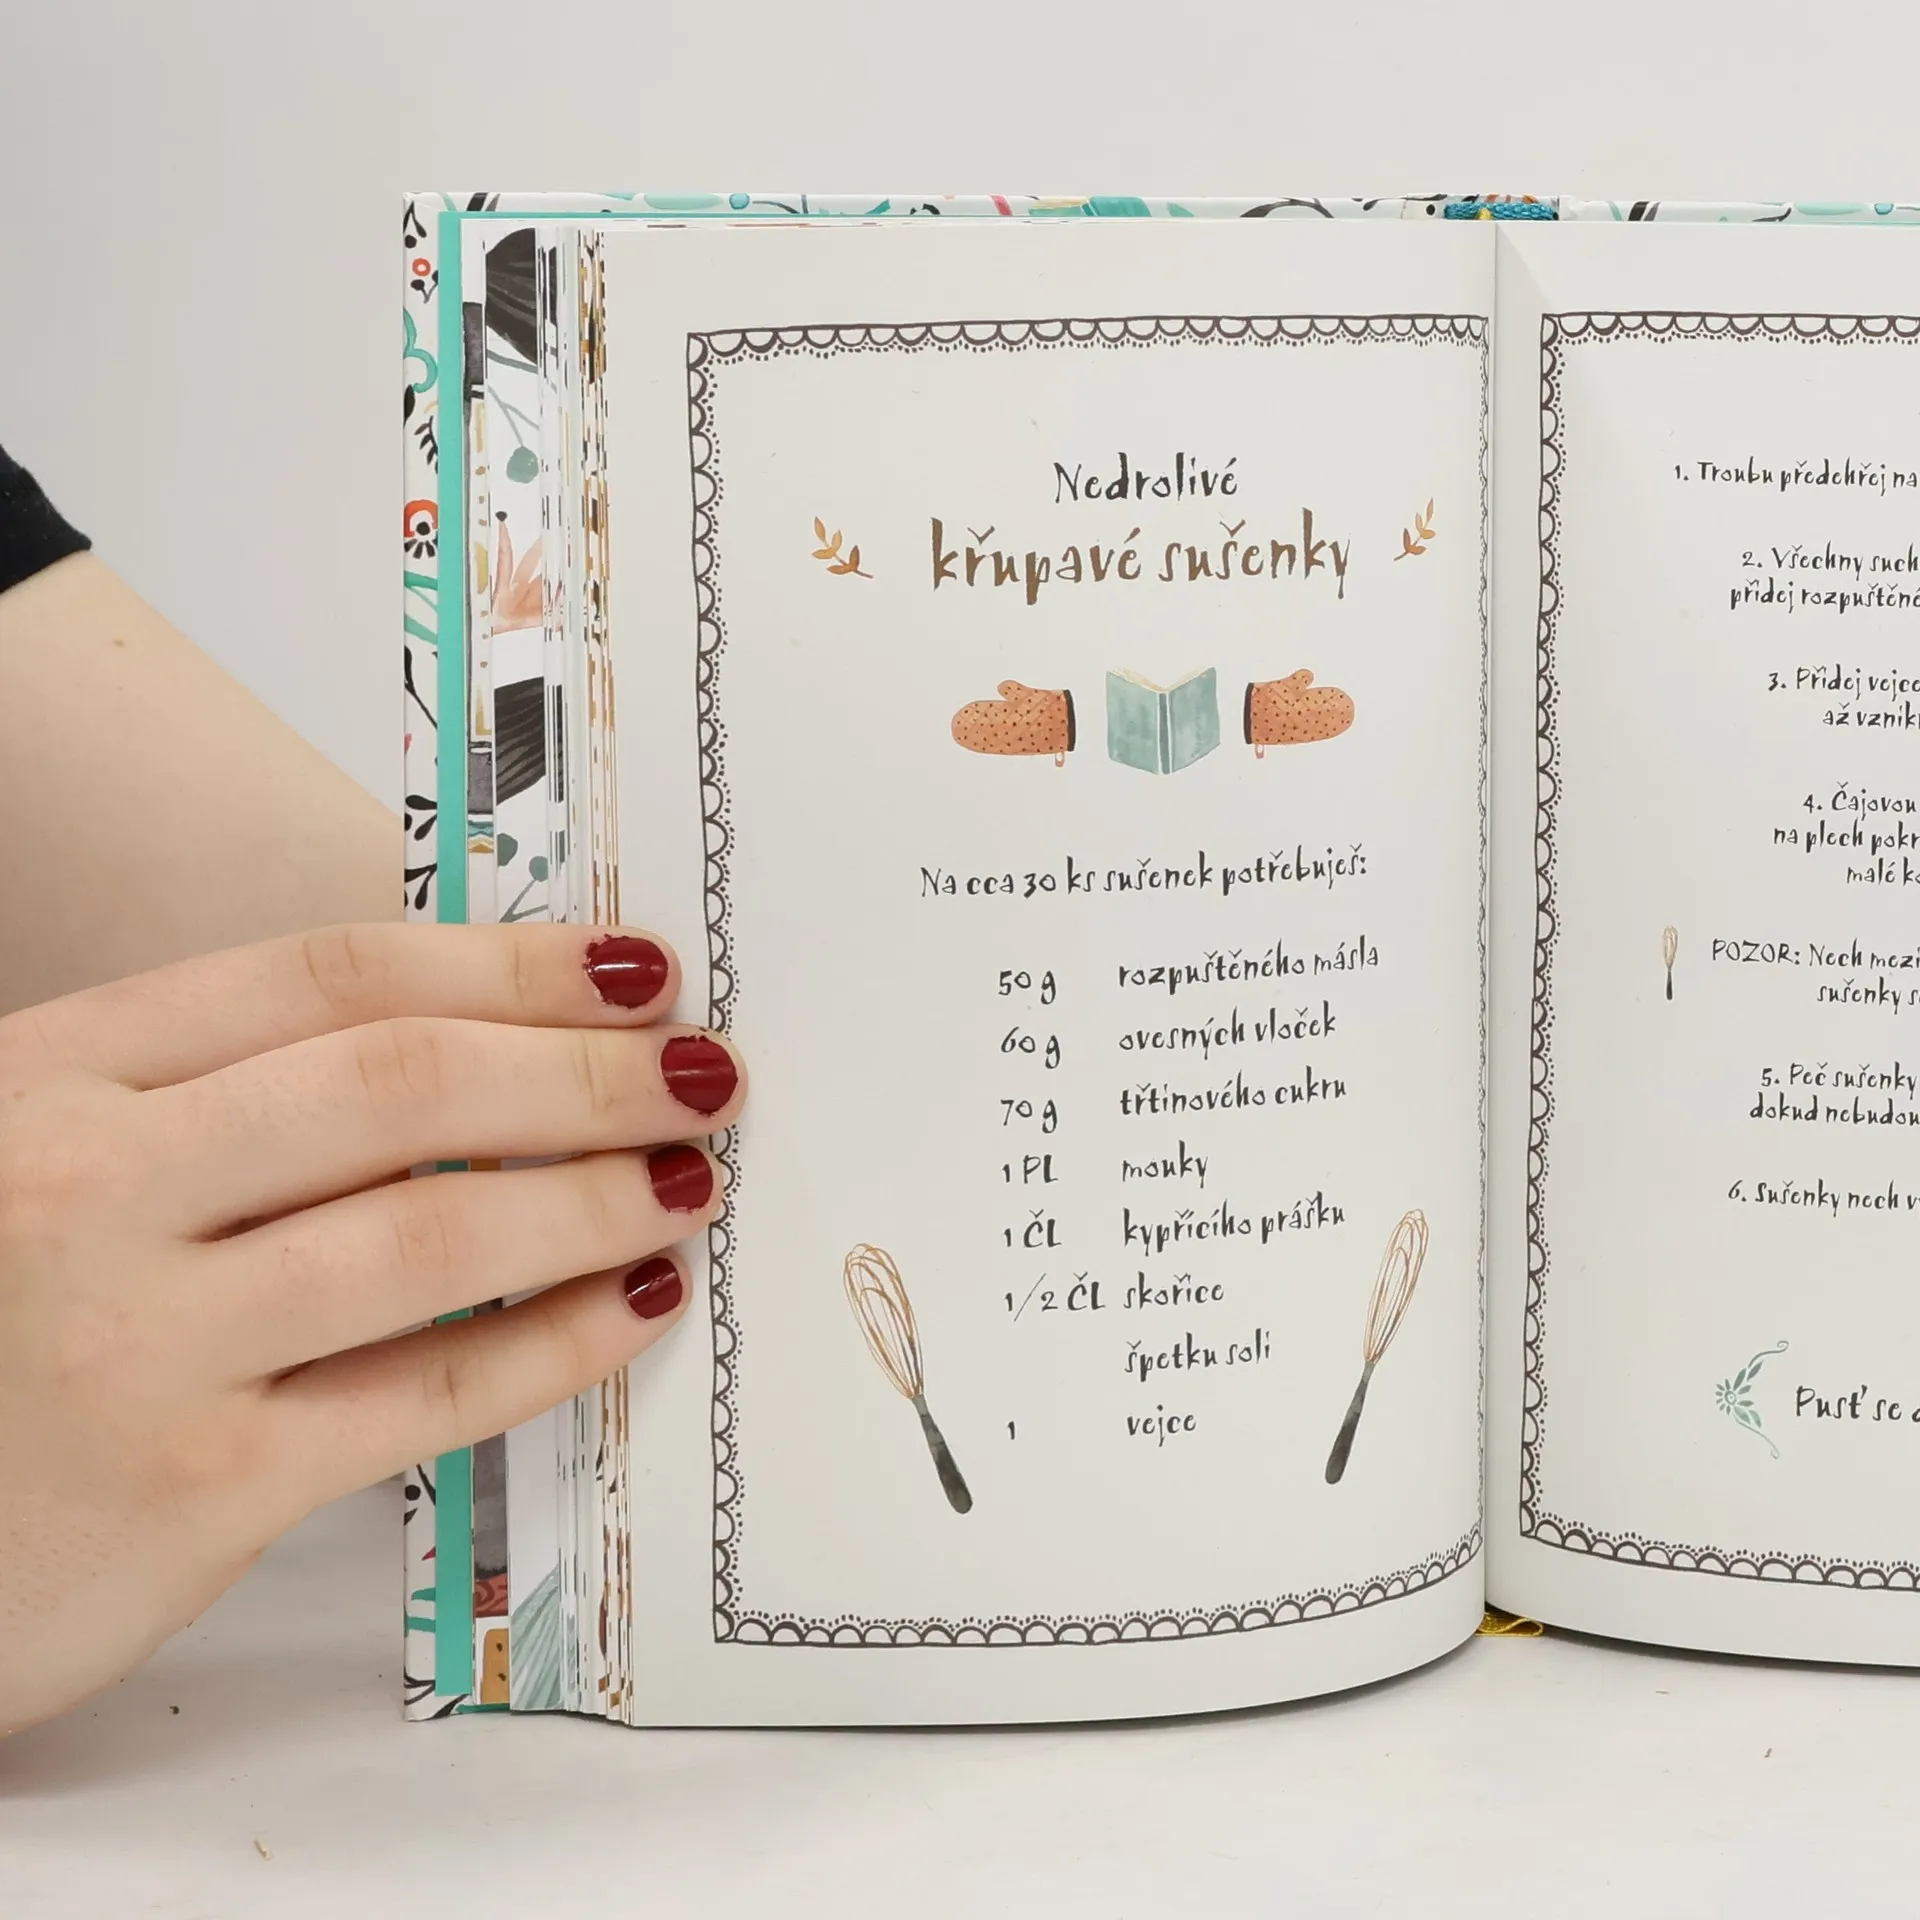 Nedrolivé
křupavé sušenky
Na cca 30 ks sušenek potřebuješ:
50 g rozpuštěného másla
60 g ovesných vloček
70 g třtinového cukru
1 PL mouky
1 ČL kypřícího prášku
1/2 ČL skořice
špetku soli
1 vejce
1. Troubu předehřej na
2. Všechny such
přidej rozpuštěné
3. Přidej vejce
až vznik
4. Čajovou
na plech pokr
malé k
POZOR: Nech mezi
sušenky s
5. Peč sušenky
dokud nebudou
6. Sušenky nech v
Pusť se